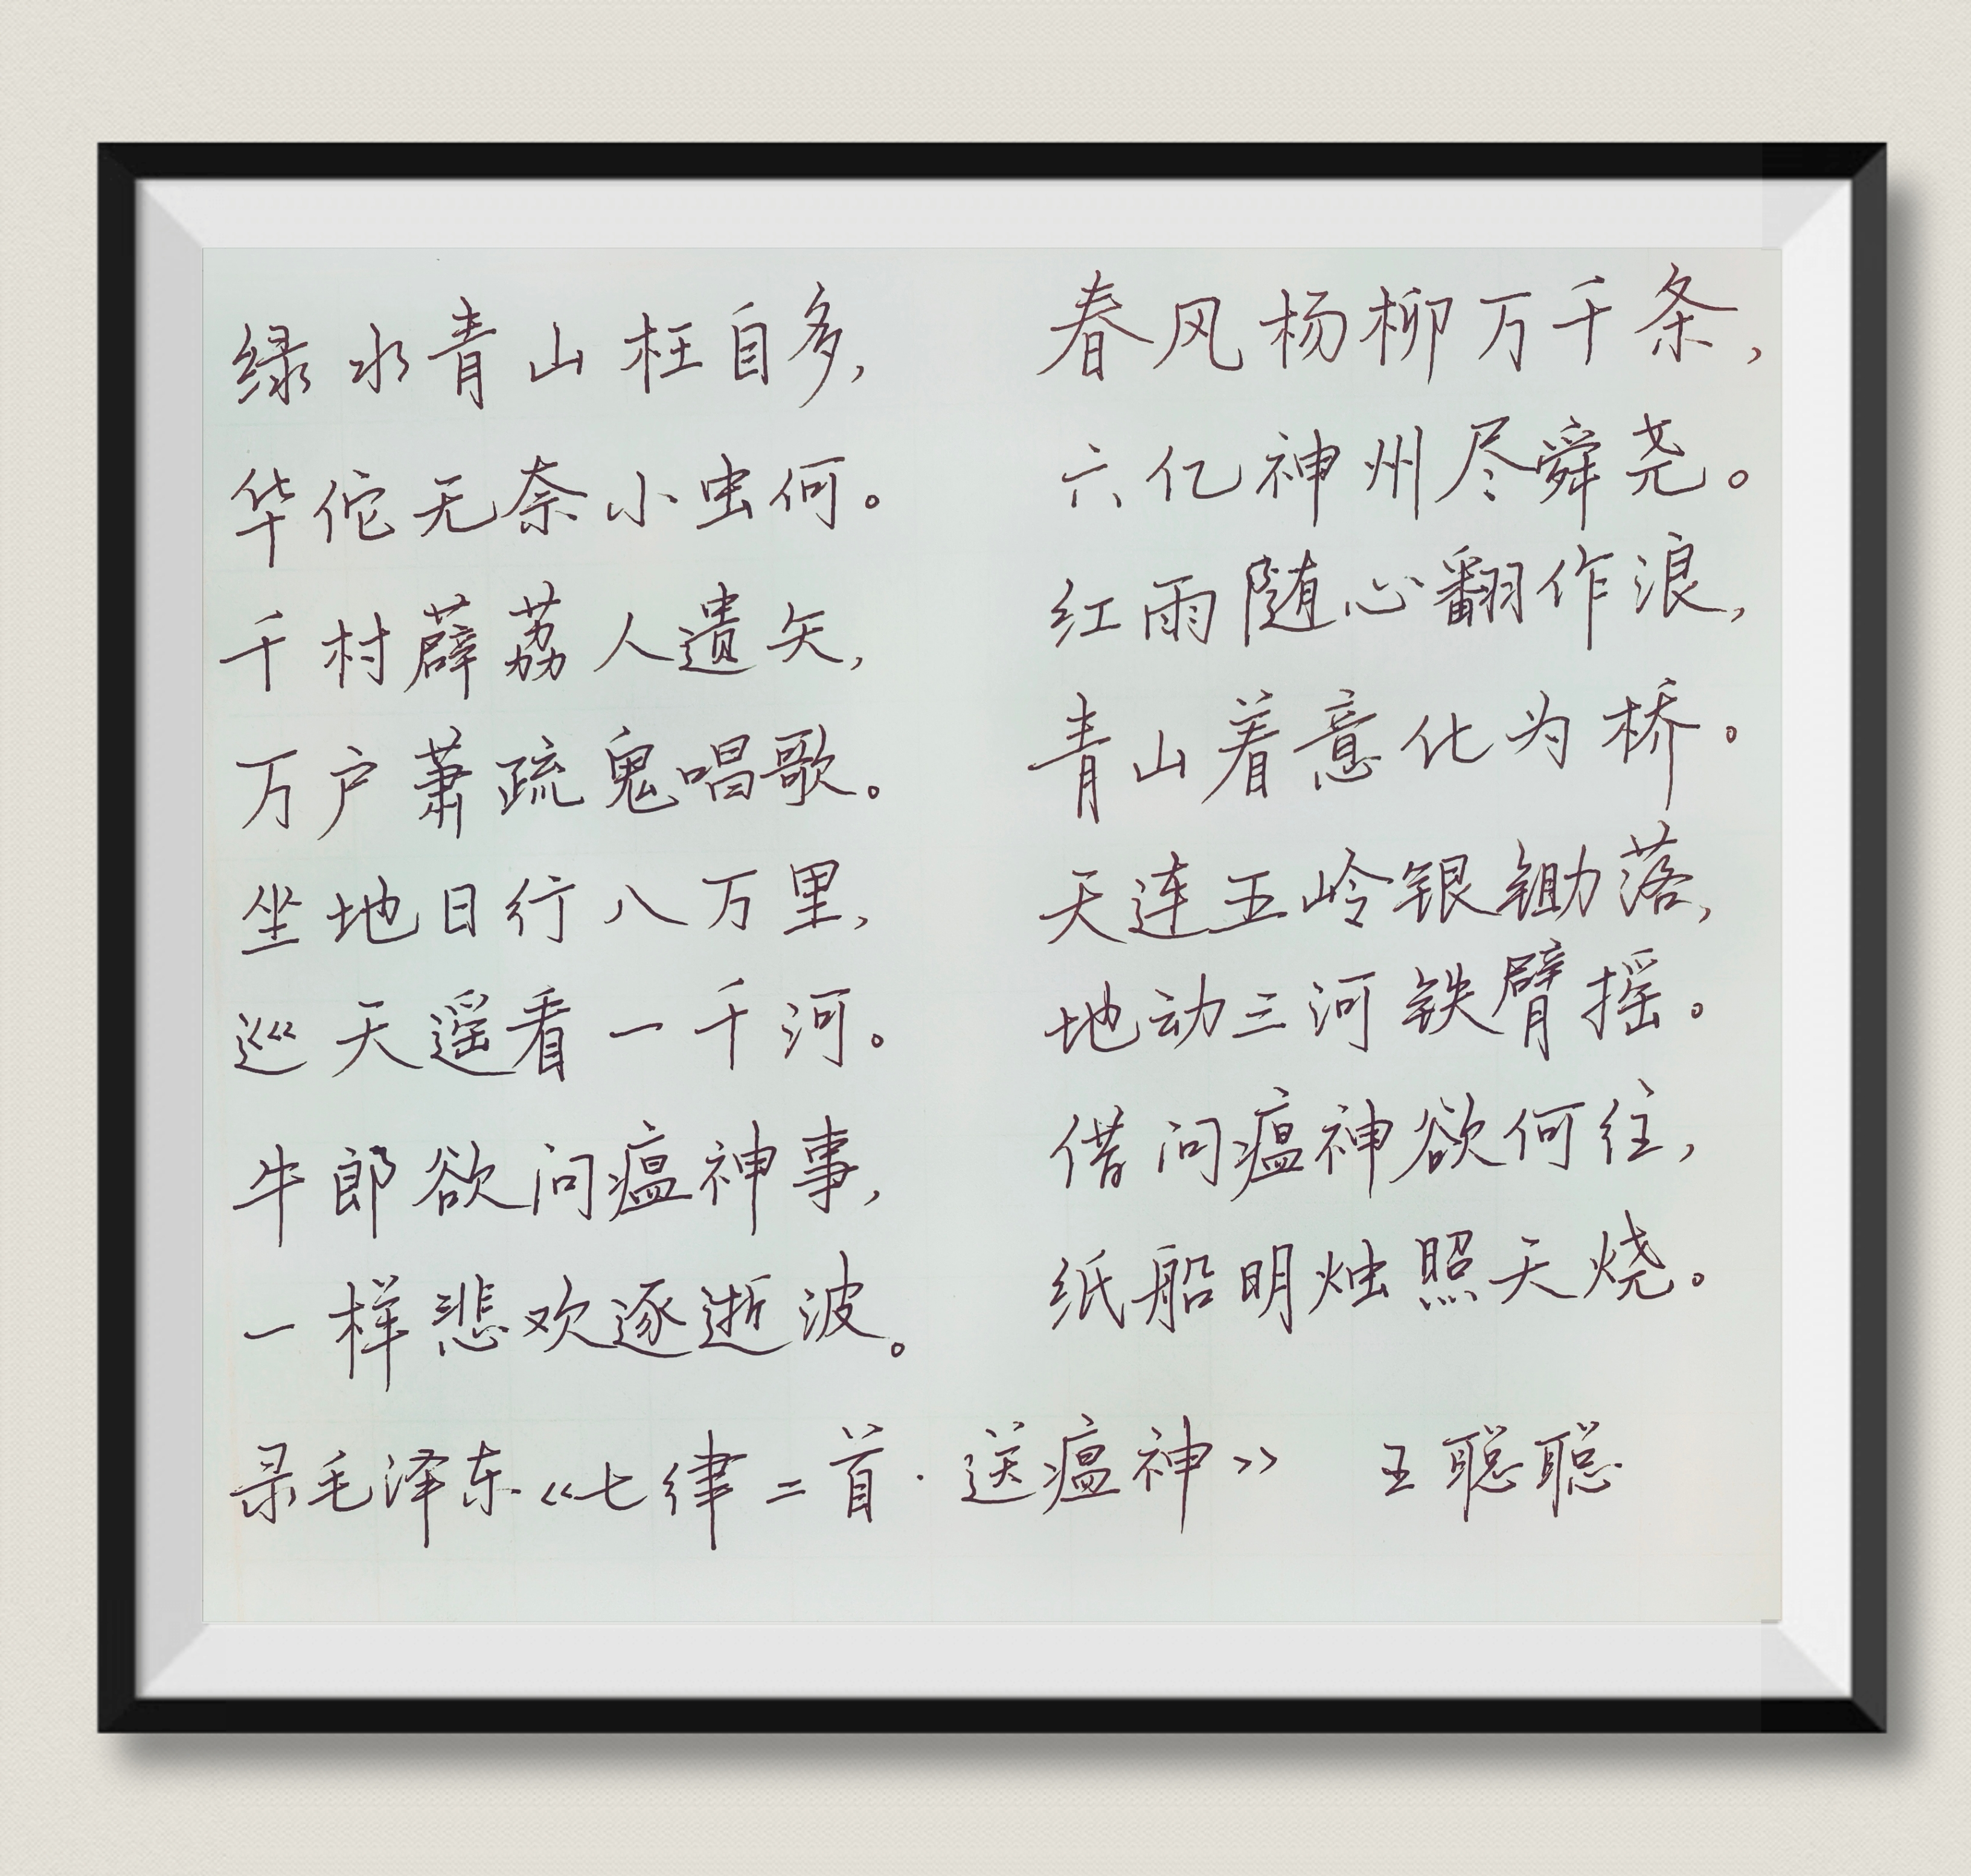 绿水青山枉自多,
华佗无奈小虫何。
千村薜荔人遗矢,
万户萧疏鬼唱歌。
坐地日行八万里,
巡天遥看一千河。
牛郎欲问瘟神事,
一样悲欢逐逝波。
春风杨柳万千条,
六亿神州尽舜尧。
红雨随心翻作浪,
青山着意化为桥。
天连五岭银锄落,
地动三河铁臂摇。
借问瘟神欲何往,
纸船明烛照天烧。
录毛泽东《七律二首·送瘟神》 王聪聪